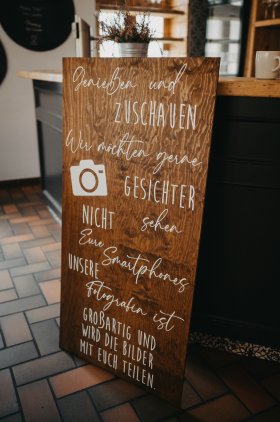 Genießen und
ZUSCHAUEN
Wir möchten gerne
GESICHTER
NICHT sehen
Eure Smartphones
UNSERE
Fotografin ist
GROẞARTIG UND
WIRD DIE BILDER
MIT EUCH TEILEN.